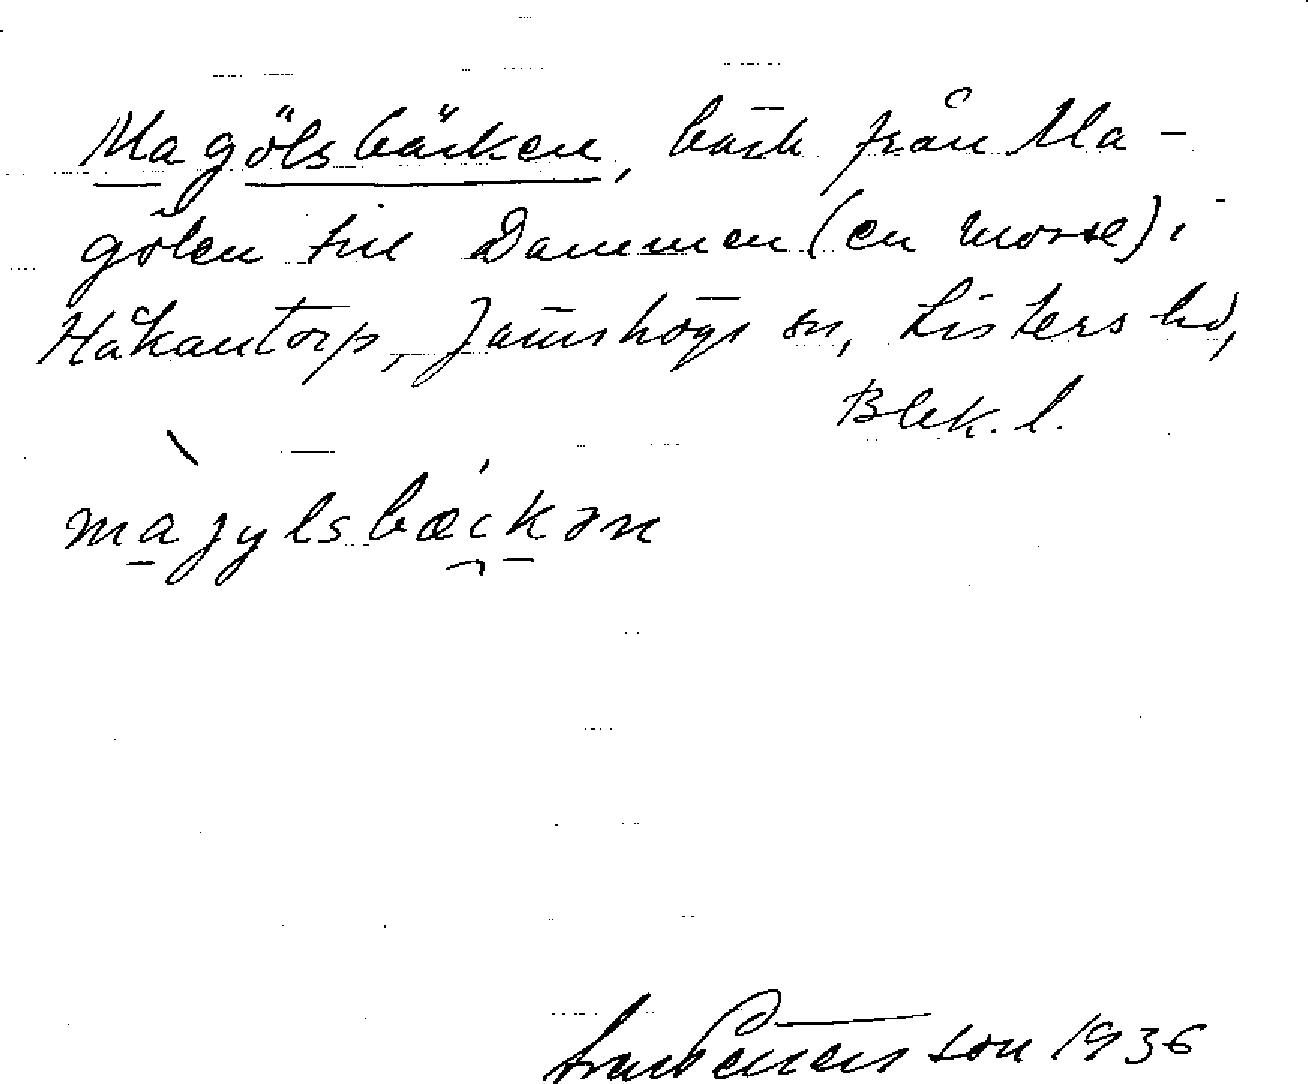 Magölsbäcken, bäck från Ma-
gölen till Dammen (en mosse) i
Håkantorp, Jämshögs sn, Listers hd,
Blek. l.
magylsbæckən
Pettersson 1936